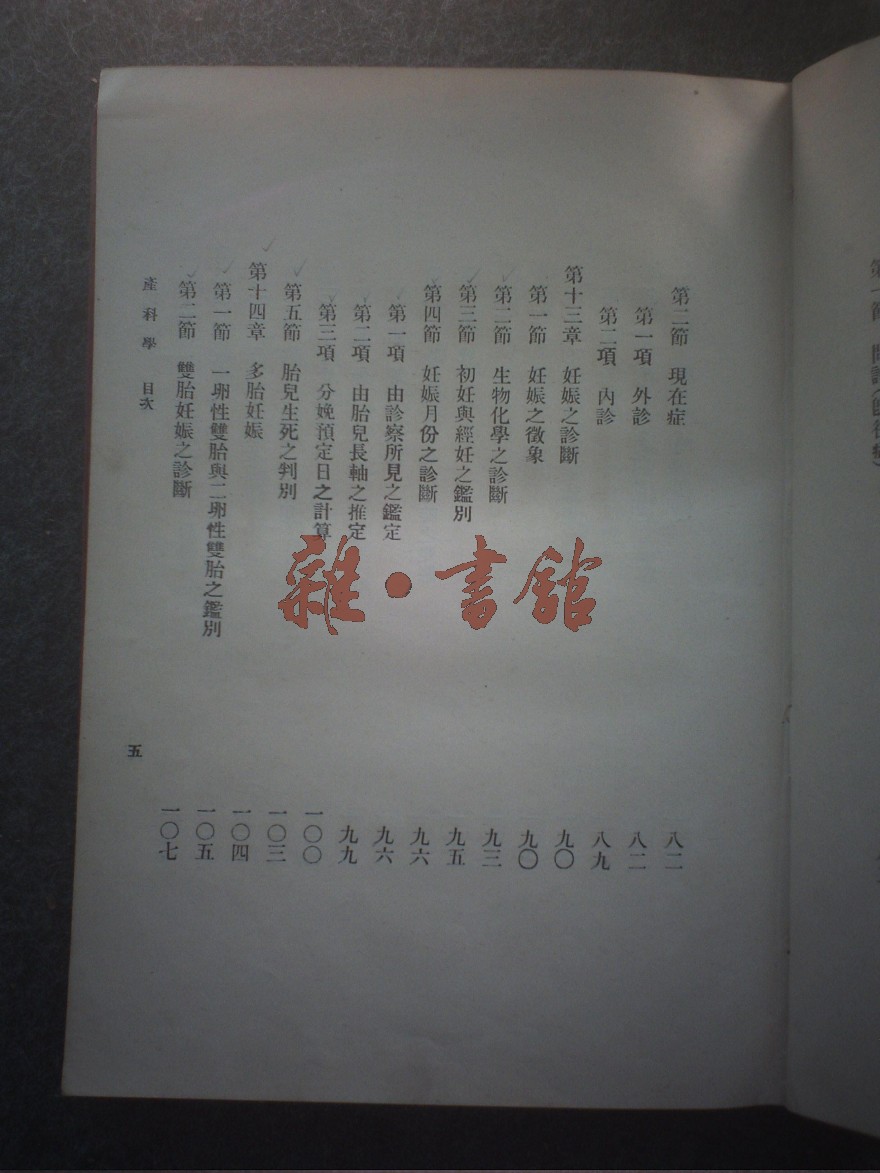 第二節 現在症 八二
第一項 外診 八二
第二項 內診 八九
第十三章 妊娠之診斷 九〇
第一節 妊娠之徵象 九〇
第二節 生物化學之診斷 九三
第三節 初妊與經妊之鑑別 九五
第四節 妊娠月份之診斷 九六
第一項 由診察所見之鑑定 九六
第二項 由胎兒長軸之推定 九九
第三項 分娩預定日之計算 一〇〇
第五節 胎兒生死之判別 一〇三
第十四章 多胎妊娠 一〇四
第一節 一卵性雙胎與二卵性雙胎之鑑別 一〇五
第二節 雙胎妊娠之診斷 一〇七
產科學 目次
五
雜·書館